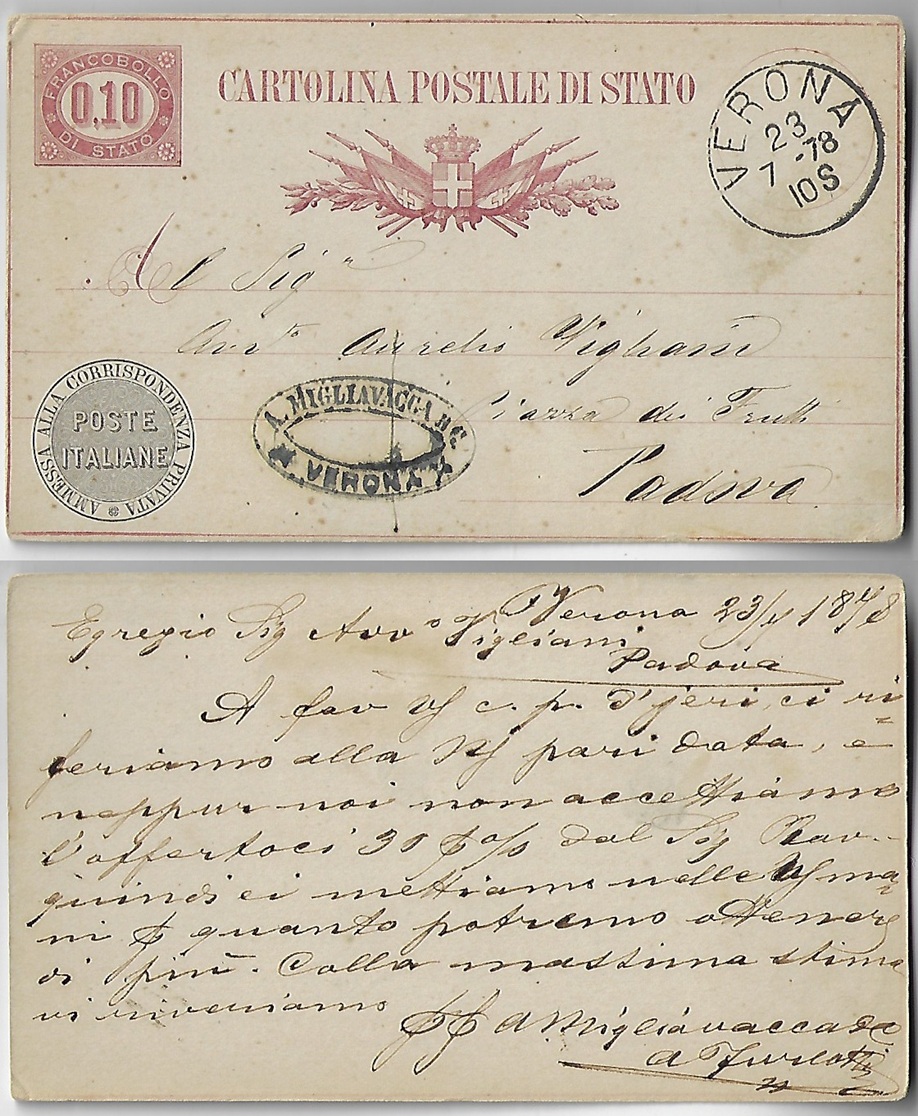 FRANCOBOLLO
0,10
DI STATO
CARTOLINA POSTALE DI STATO
VERONA
23
7 -78
10S
Al Sigr
Avvo Aurelio Vigliani
Piazza dei Frutti
Padova
AMMESSA ALLA CORRISPONDENZA PRIVATA
POSTE
ITALIANE
A. MIGLIAVACCA
VERONA
Verona 23/7 1878
Egregio Sig Avvo Vigliani
Padova
A fav c. p. d'jeri, ci ri=
feriamo alla pari data, e
neppur noi non accettiamo
l'offertoci 30 % dal Sig
quindi ci mettiamo nelle ma=
ni quanto potremo ottenere
di più. Colla massima stima
vi riveriamo
A Migliavacca
A Furlotti